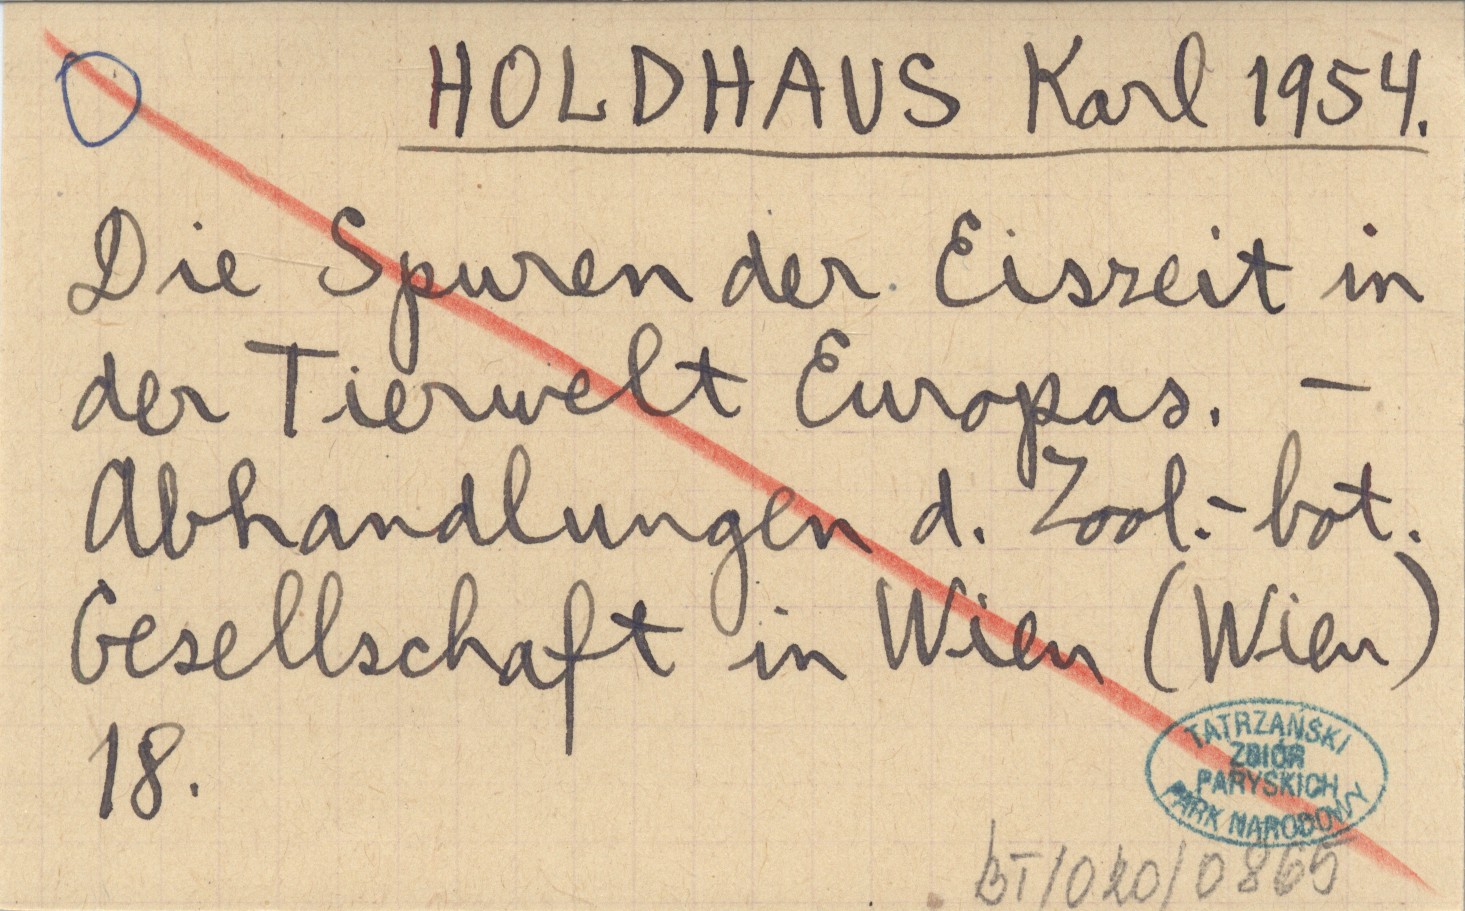 HOLDHAUS Karl 1954.
Die Spuren der Eiszeit in
der Tierwelt Europas. –
Abhandlungen d. Zool.-bot.
Gesellschaft in Wien (Wien)
18.
TATRZAŃSKI
ZBIÓR
PARYSKICH
PARK NARODOWY
BT/020/0865